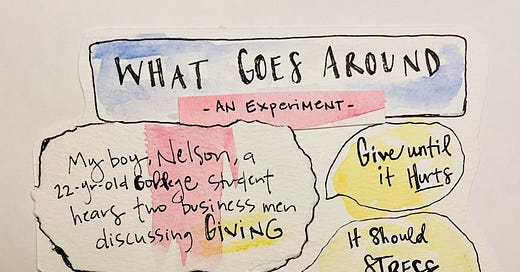 WHAT GOES AROUND
- AN EXPERIMENT -
My boy, Nelson, a
22-yr-old college student
hears two business men
discussing GIVING
Give until
it Hurts
It Should
STRESS